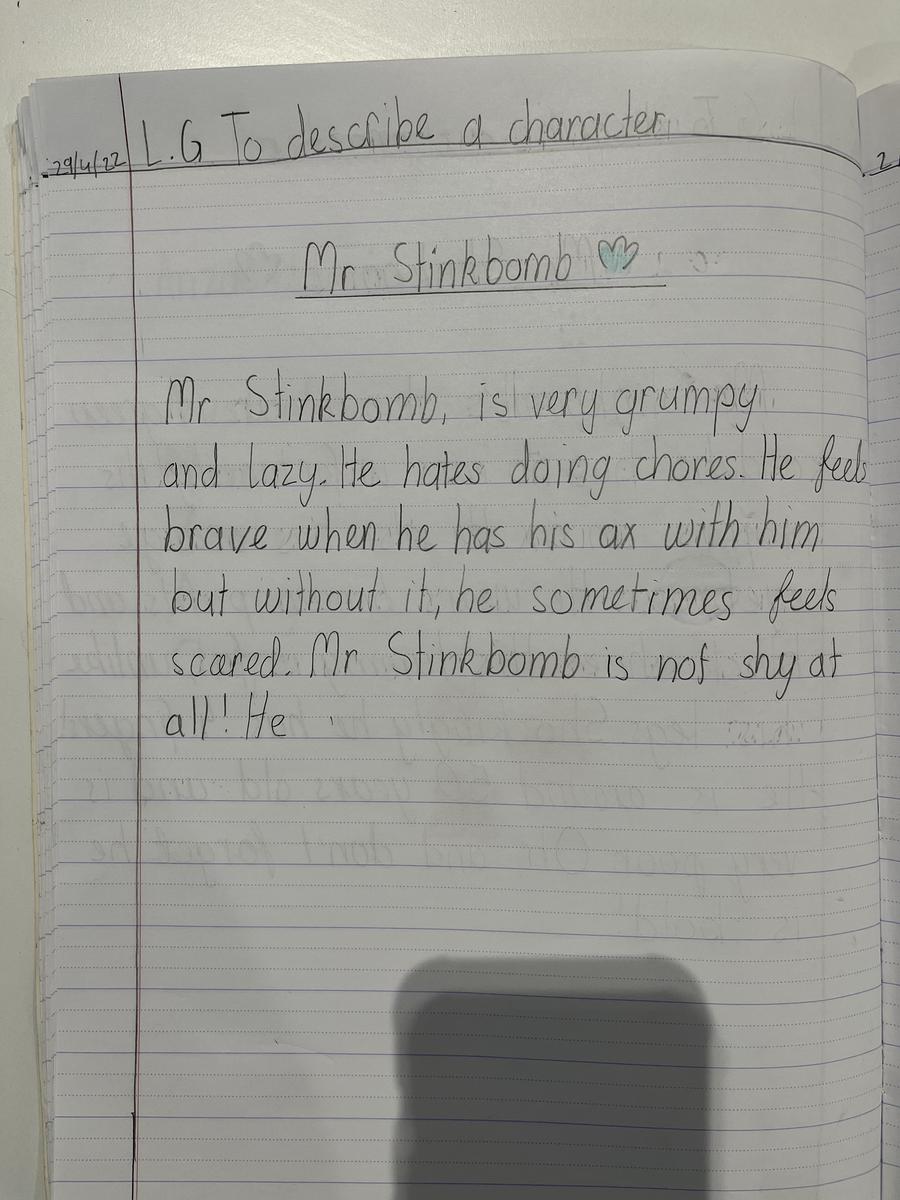 L.G To describe a character
29/4/22
Mr Stinkbomb
Mr Stinkbomb, is very grumpy
and lazy. He hates doing chores. He feels
brave when he has his ax with him
but without it, he sometimes feels
scared. Mr Stinkbomb is not shy at
all! He
2